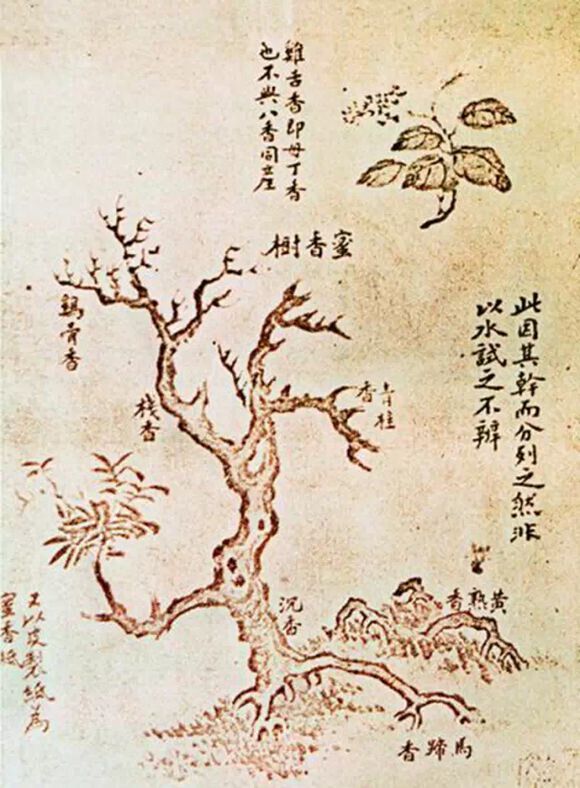 雞舌香即母丁香
也不與八香同
蜜香樹
此因其幹而分列之然非
以水試之不辨
青桂
香
鷄骨香
棧香
沉香
黃熟香
馬蹄香
又以皮製紙為
蜜香紙